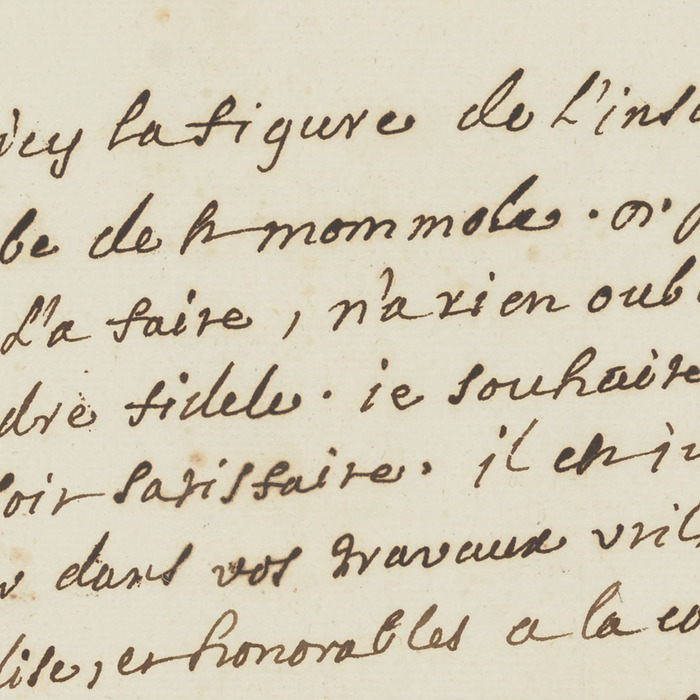 icy la figure de L'ins
be de st mommole. on
L'a faire, n'a rien oub
dre fidele. ie souhaite
oir satisfaire. il est iu
dans vos travaux util
lise, et honorables a la co